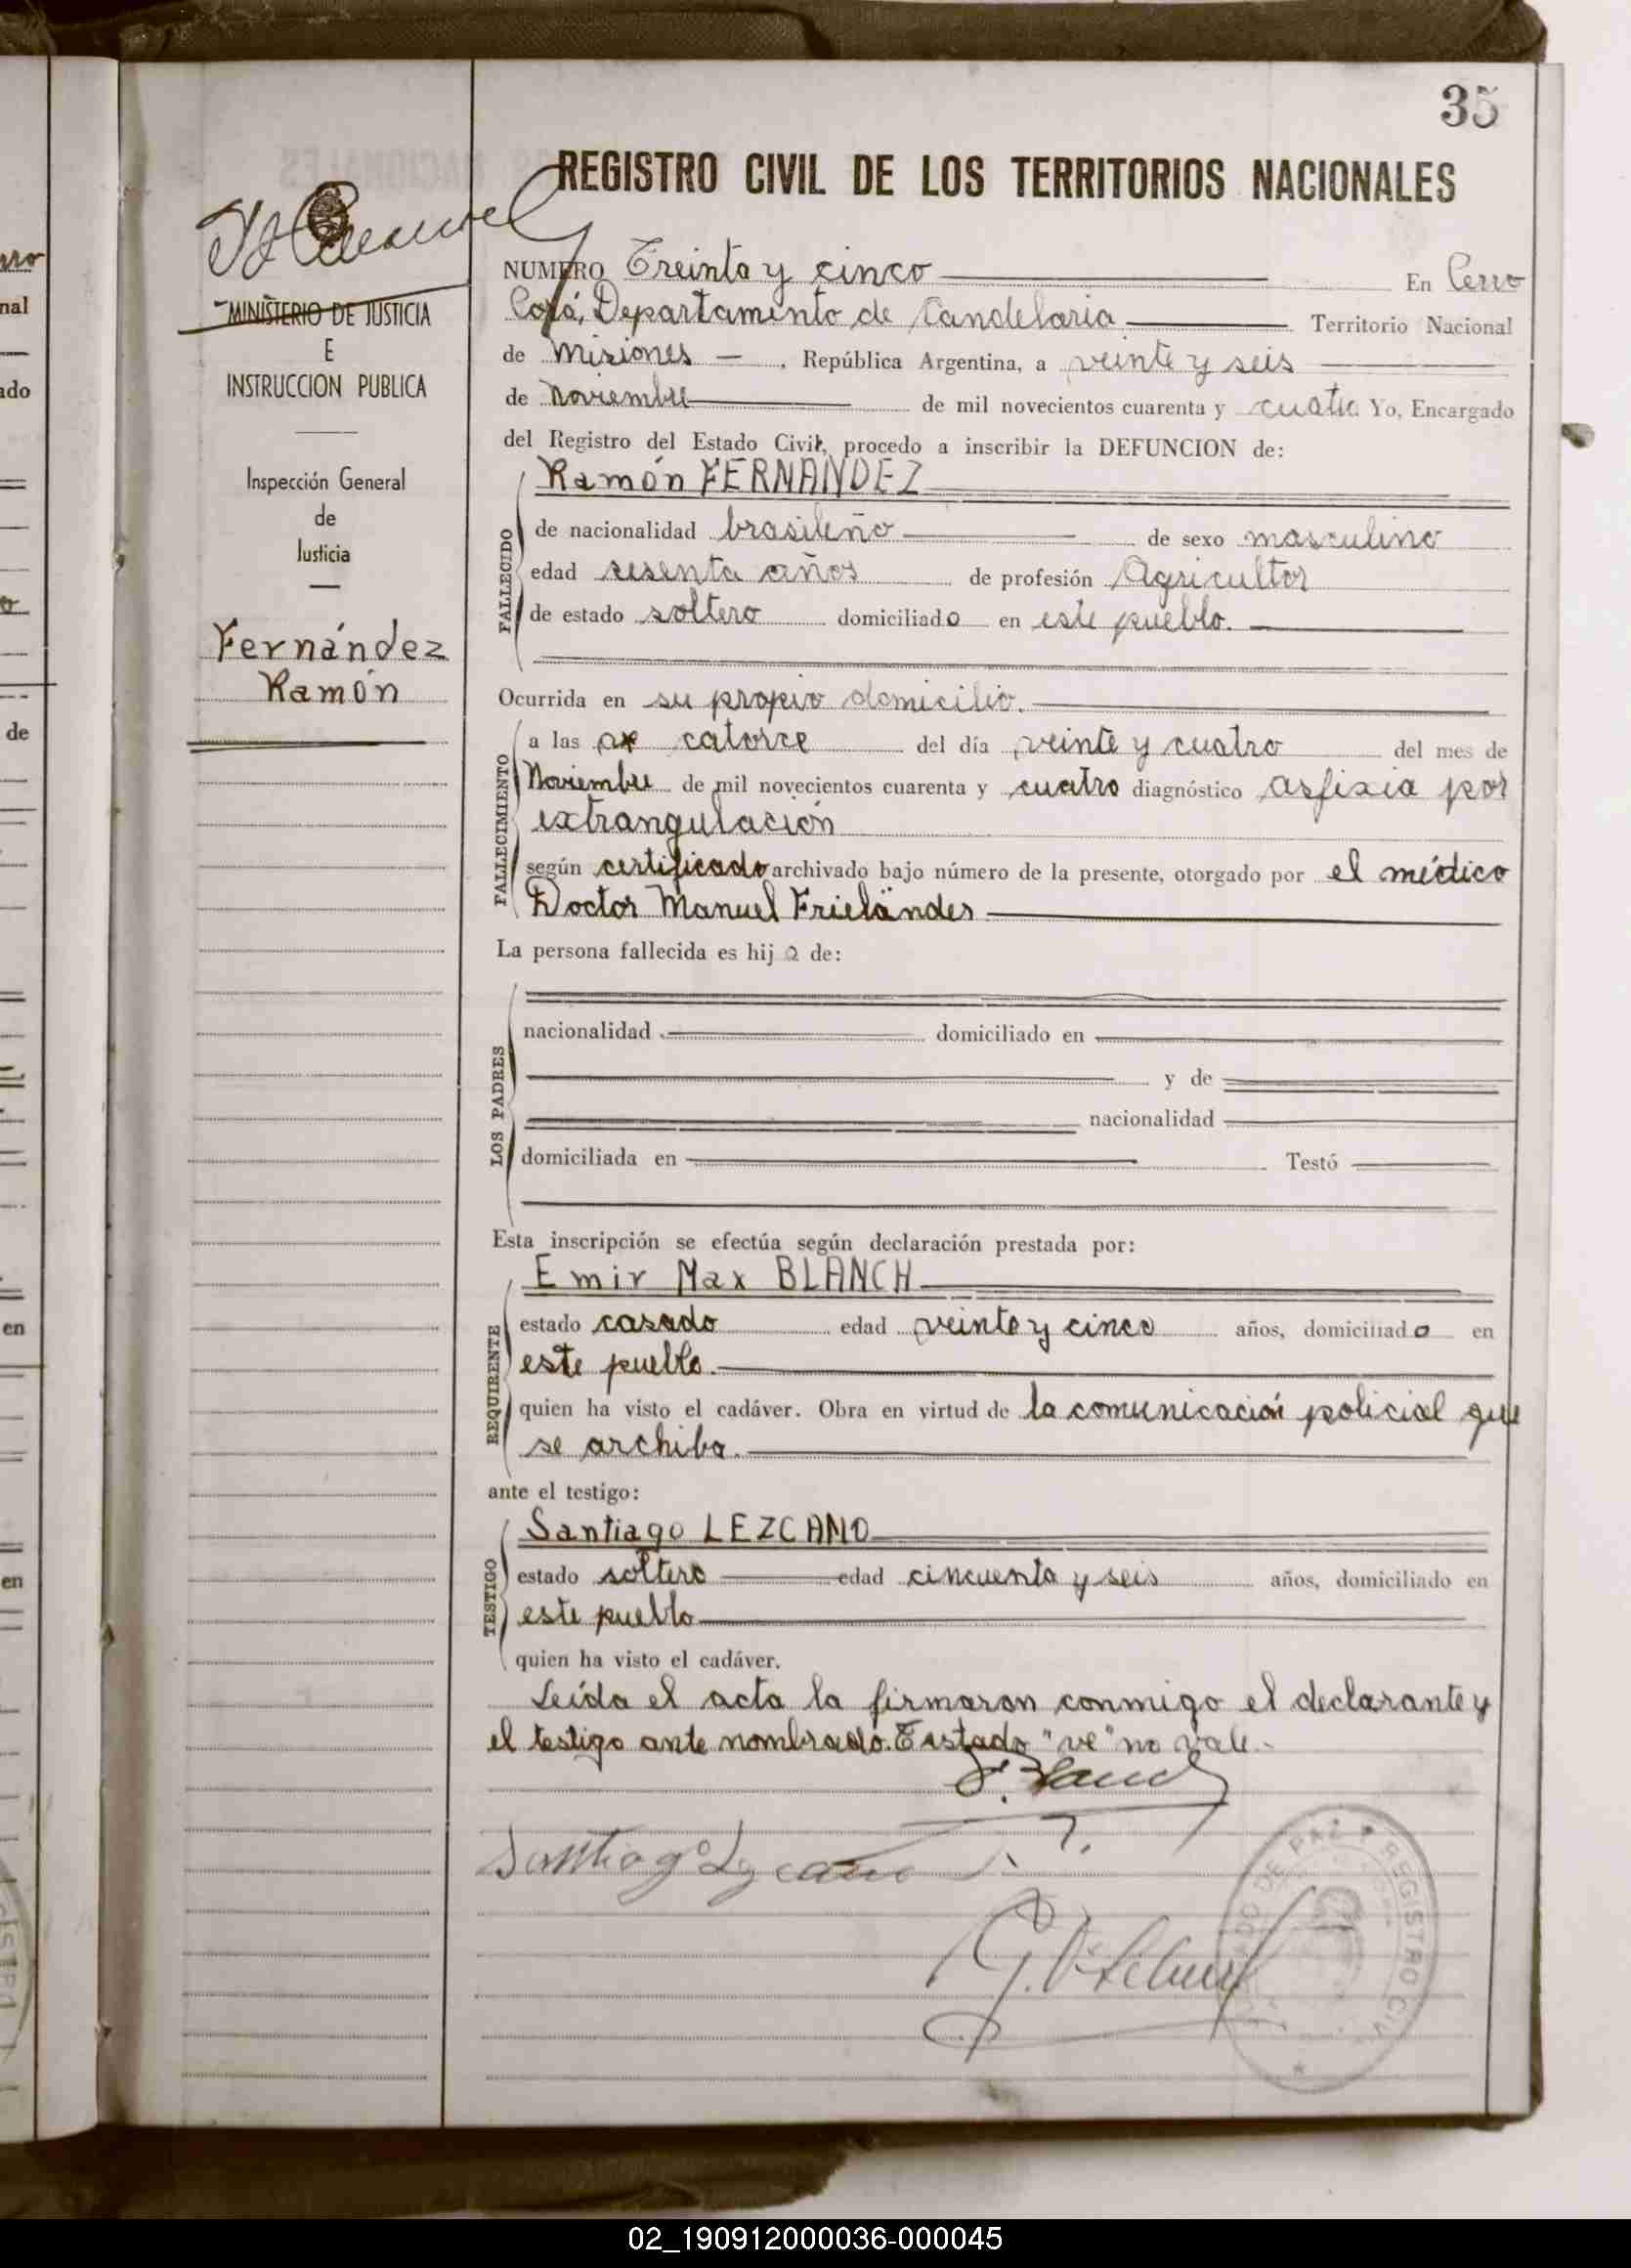 35
REGISTRO CIVIL DE LOS TERRITORIOS NACIONALES
MINISTERIO DE JUSTICIA
E
INSTRUCCION PUBLICA
Inspección General
de
Justicia
Fernández
Ramón
NUMERO Treinta y cinco En Cerro
Corá, Departamento de Candelaria Territorio Nacional
de Misiones — , República Argentina, a veinte y seis
de Noviembre de mil novecientos cuarenta y cuatro Yo, Encargado
del Registro del Estado Civil, procedo a inscribir la DEFUNCION de:
Ramón FERNANDEZ
FALLECIDO
de nacionalidad brasileño de sexo masculino
edad sesenta años de profesión Agricultor
de estado soltero domiciliado en este pueblo.
Ocurrida en su propio domicilio.
FALLECIMIENTO
a las catorce del día veinte y cuatro del mes de
Noviembre de mil novecientos cuarenta y cuatro diagnóstico asfixia por
extrangulación
según certificado archivado bajo número de la presente, otorgado por el médico
Doctor Manuel Frieländer
La persona fallecida es hijo de:
LOS PADRES
nacionalidad domiciliado en
y de
nacionalidad
domiciliada en Testó
Esta inscripción se efectúa según declaración prestada por:
Emir Max BLANCH
REQUIRENTE
estado casado edad veinte y cinco años, domiciliado en
este pueblo.
quien ha visto el cadáver. Obra en virtud de la comunicación policial que
se archiba.
ante el testigo:
Santiago LEZCANO
TESTIGO
estado soltero edad cincuenta y seis años, domiciliado en
este pueblo
quien ha visto el cadáver.
Leída el acta la firmaron conmigo el declarante y
el testigo ante nombrado. Testado "ve" no vale.-
Santiago Lezcano
DE PAZ REGISTRO CIVIL
02_190912000036-000045